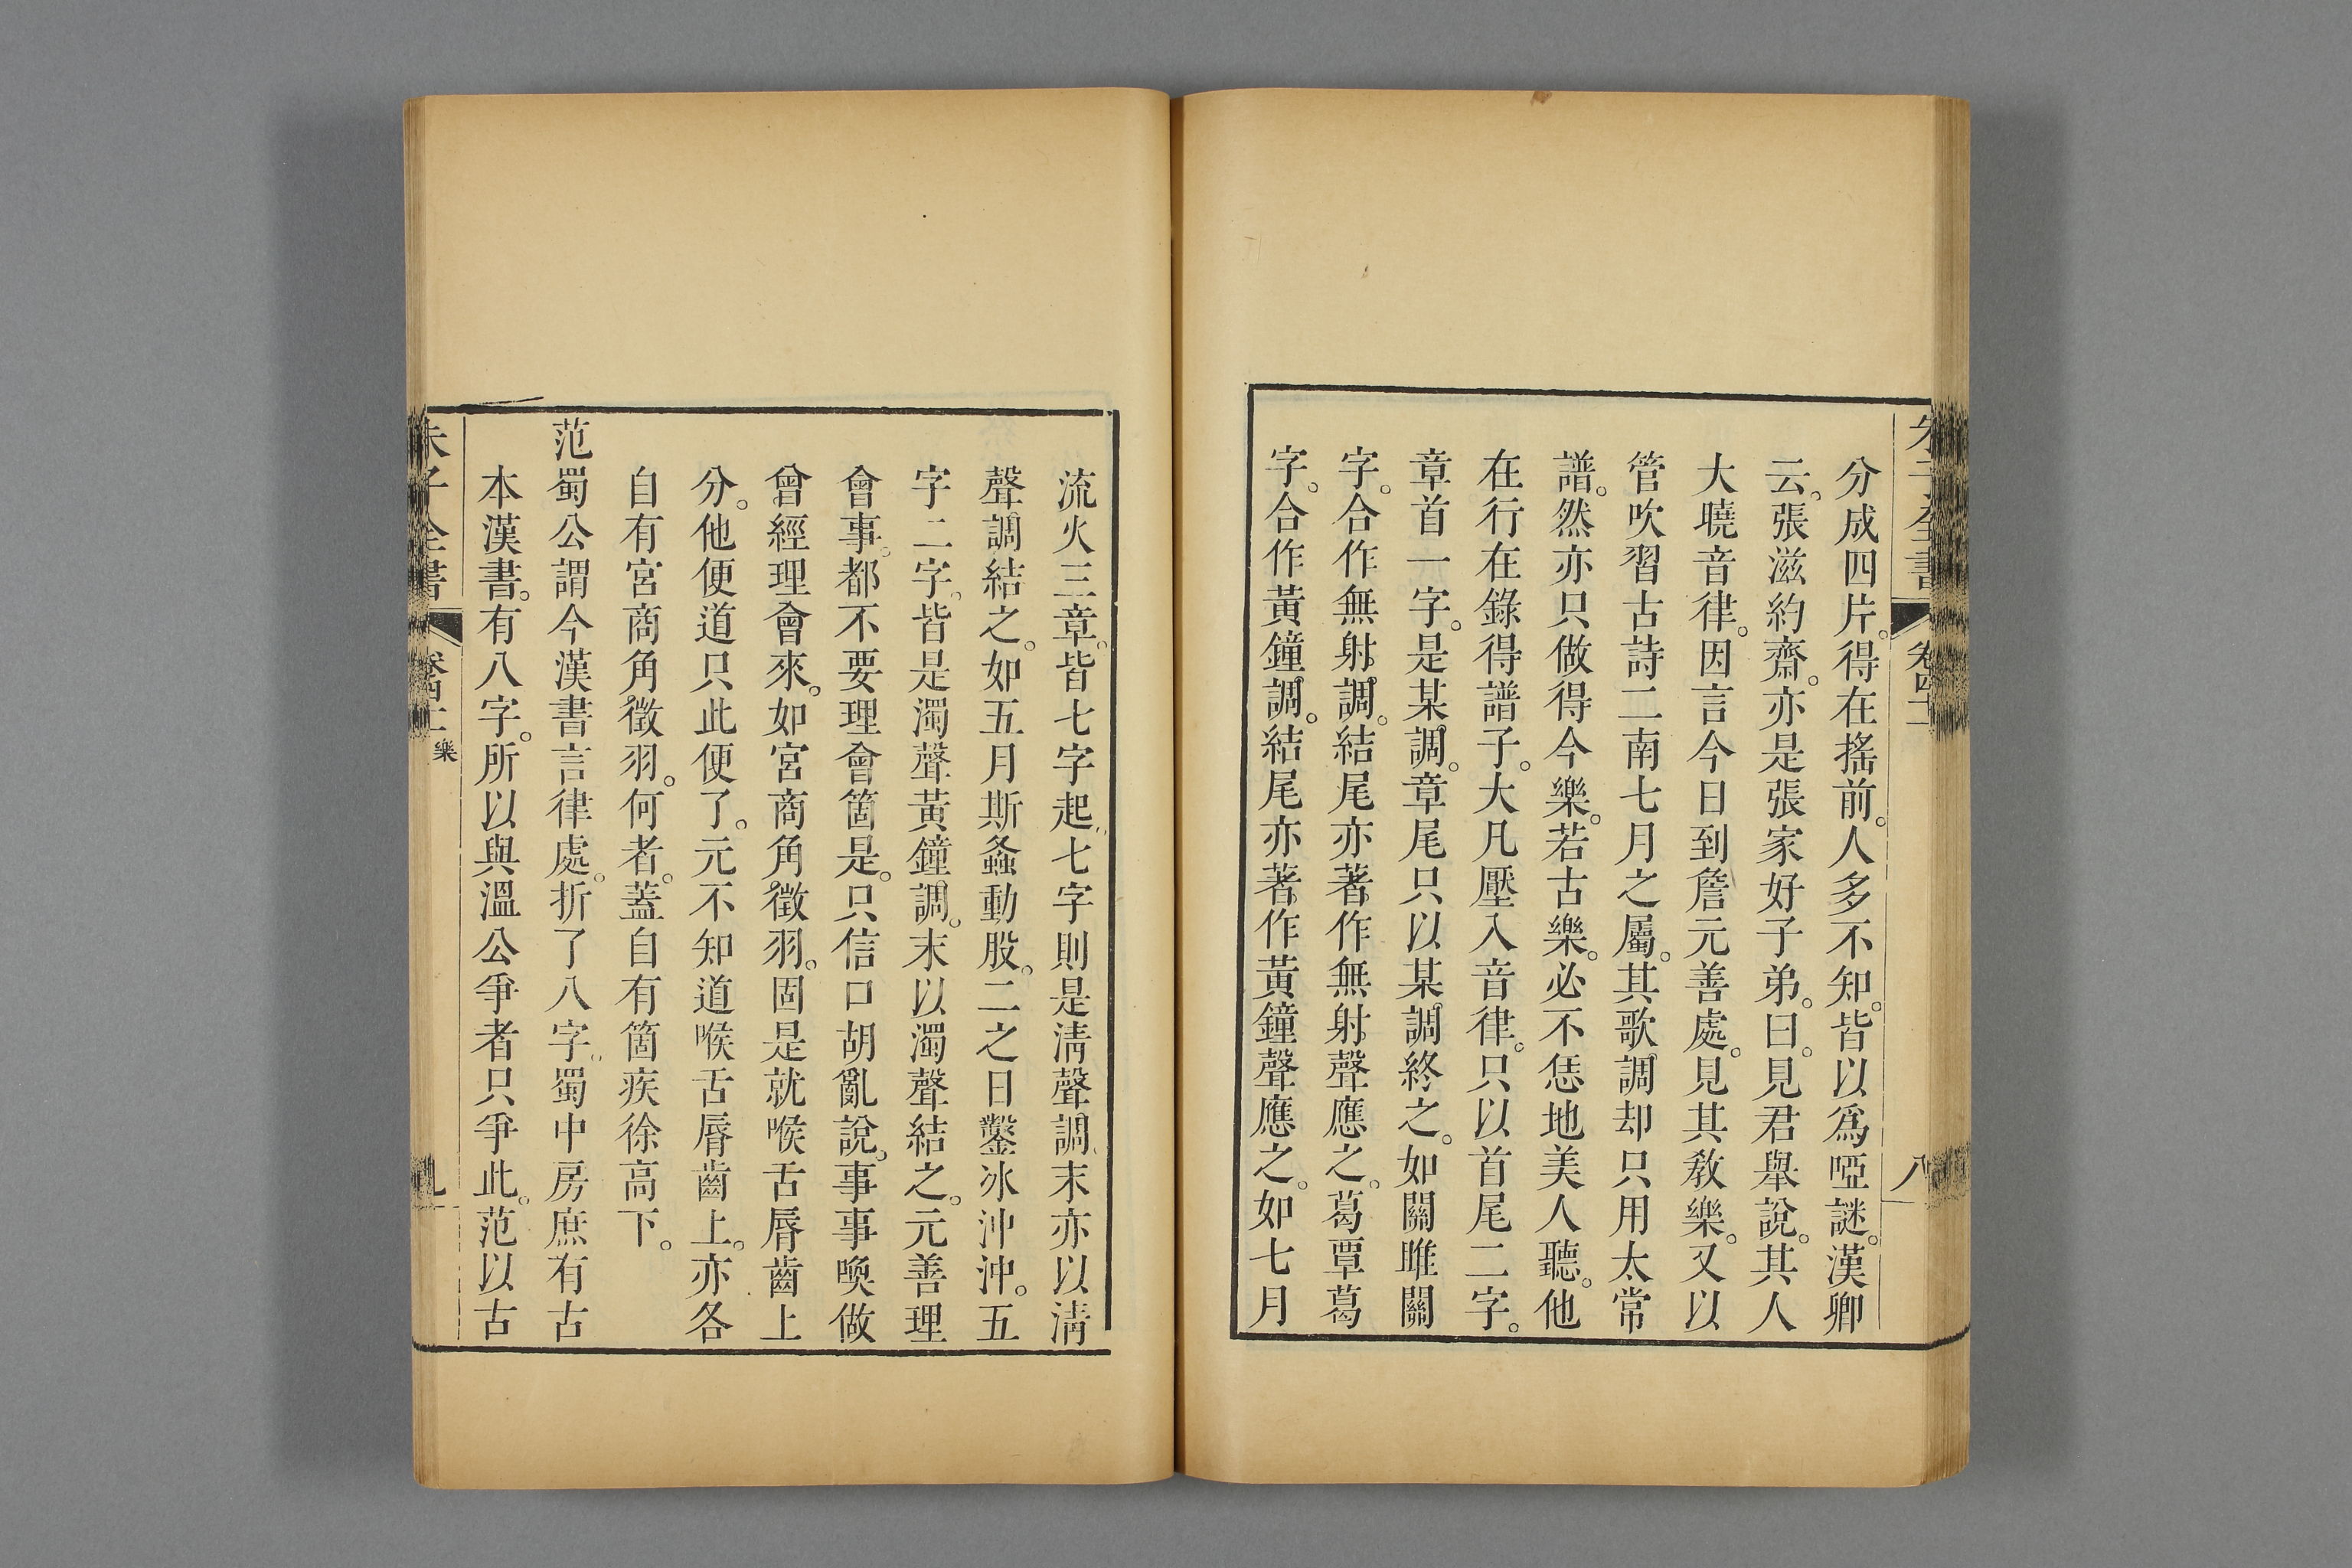 朱子全書 卷四十一 八
分成四片。得在搖前。人多不知。皆以爲啞謎。漢卿
云。張滋約齋。亦是張家好子弟。曰。見君舉說。其人
大曉音律。因言今日到詹元善處。見其教樂。又以
管吹習古詩二南七月之屬。其歌調却只用太常
譜。然亦只做得今樂。若古樂。必不恁地美人聽。他
在行在錄得譜子。大凡壓入音律。只以首尾二字。
章首一字。是某調。章尾只以某調終之。如關雎關
字。合作無射調。結尾亦著作無射聲應之。葛覃葛
字。合作黃鐘調。結尾亦著作黃鐘聲應之。如七月
流火三章。皆七字起。七字則是清聲調。末亦以清
聲調結之。如五月斯螽動股。二之日鑿冰沖沖。五
字二字。皆是濁聲黃鐘調。末以濁聲結之。元善理
會事。都不要理會箇是。只信口胡亂說。事事喚做
曾經理會來。如宮商角徵羽。固是就喉舌脣齒上
分。他便道只此便了。元不知道喉舌脣齒上。亦各
自有宮商角徵羽。何者。蓋自有箇疾徐高下。
范蜀公謂今漢書言律處。折了八字。蜀中房庶有古
本漢書。有八字。所以與溫公爭者只爭此。范以古
朱子全書 卷四十一 樂 九